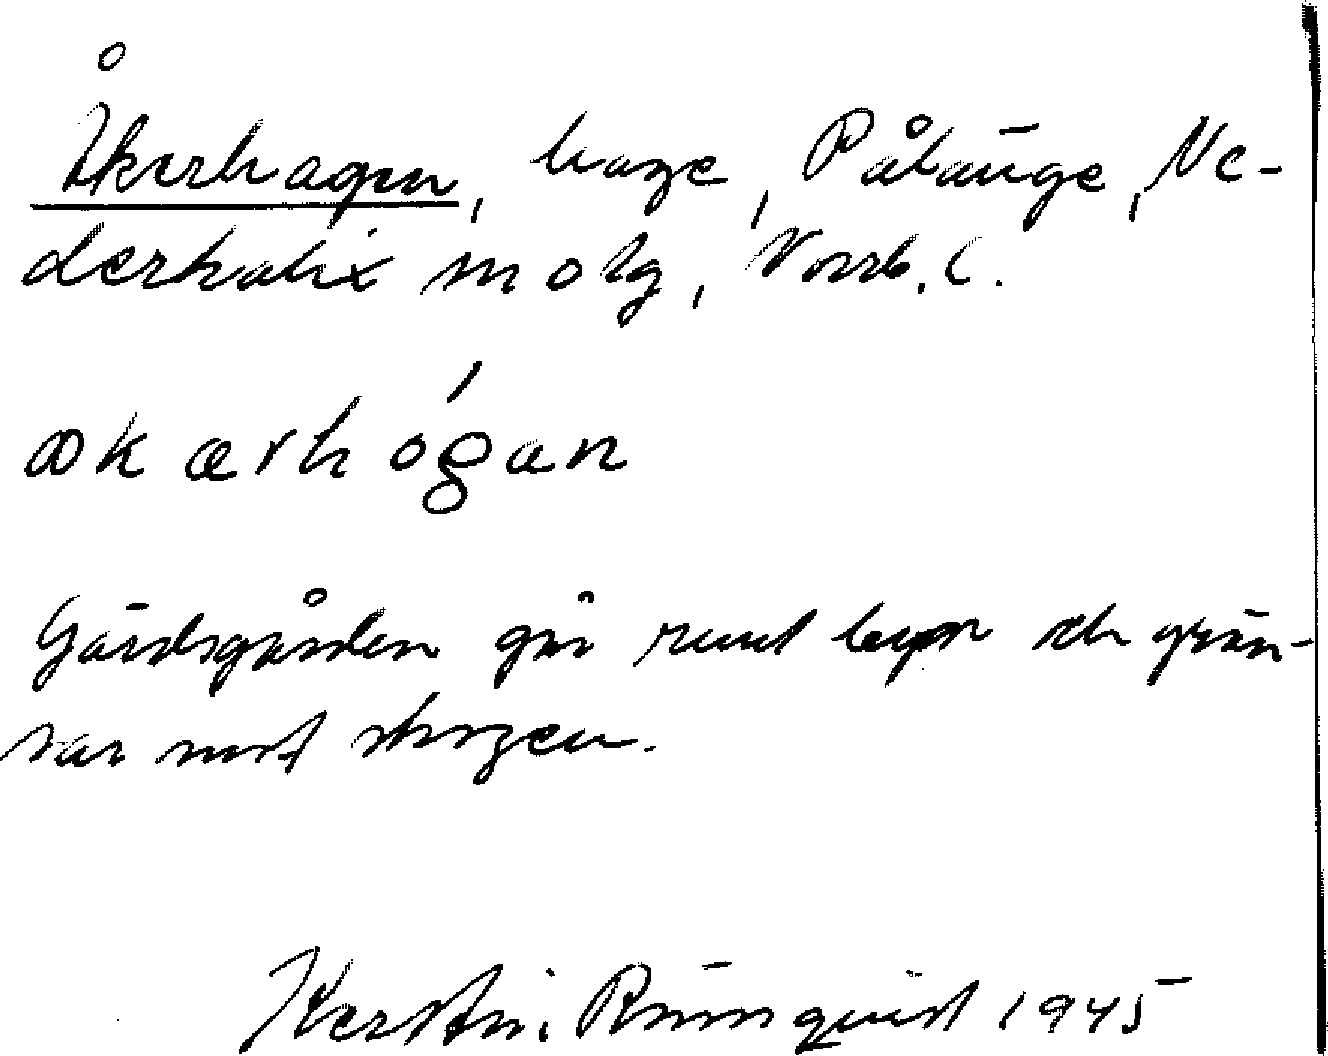 Åkerhagen, hage, Pålänge, Ne-
derkalix sn o tg, Norrb. l.
Gärdsgården går runt och grän-
sar mot skogen.
Kerstin Rönnquist 1945